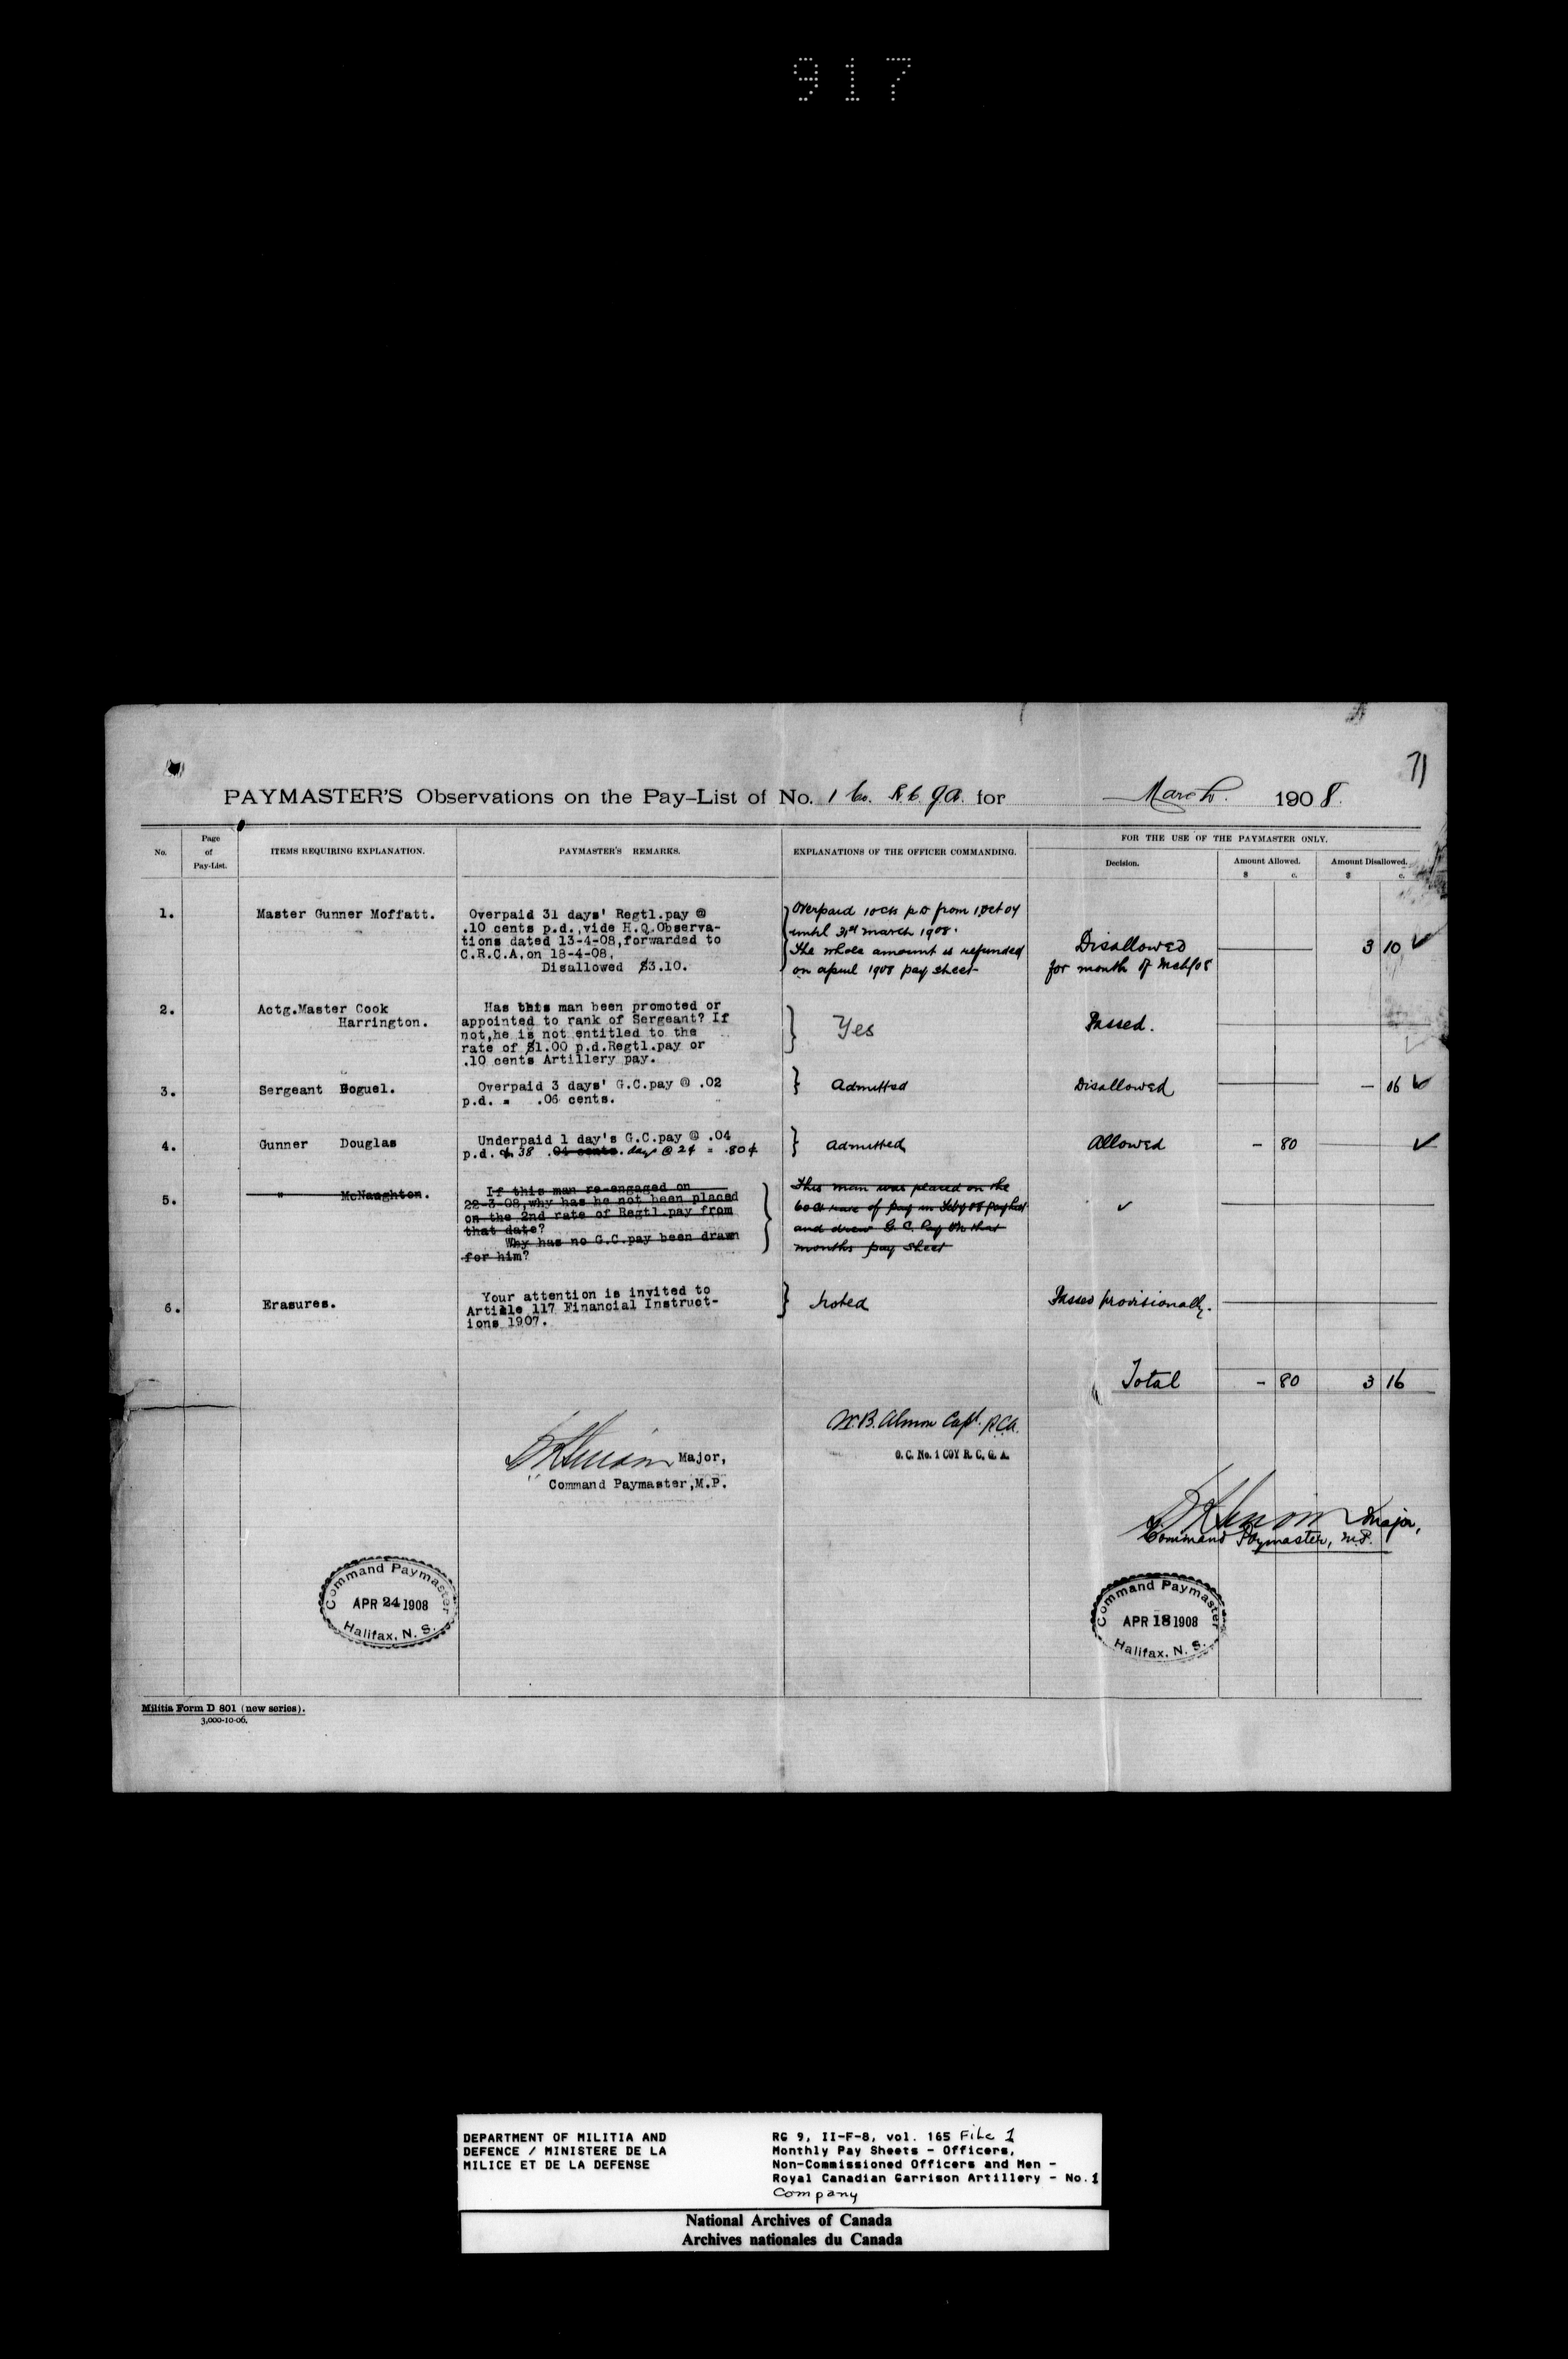 917
71
PAYMASTER'S Observations on the Pay-List of No. 1 Co. R.C.G.A. for March 1908.
No.
Page of Pay-List.
ITEMS REQUIRING EXPLANATION.
PAYMASTER'S REMARKS.
EXPLANATIONS OF THE OFFICER COMMANDING.
FOR THE USE OF THE PAYMASTER ONLY.
Decision.
Amount Allowed.
$ c.
Amount Disallowed.
$ c.
1.
Master Gunner Moffatt.
Overpaid 31 days' Regtl.pay @
.10 cents p.d.,vide H.Q.Observa-
tions dated 13-4-08,forwarded to
C.R.C.A.on 18-4-08.
Disallowed $3.10.
Overpaid 10cts p.d from 1 Oct 04
until 31st March 1908.
The whole amount is refunded
on April 1908 pay sheet
Disallowed
for month of Mch/08
3 10 ✓
2.
Actg.Master Cook
Harrington.
Has this man been promoted or
appointed to rank of Sergeant? If
not,he is not entitled to the
rate of $1.00 p.d.Regtl.pay or
.10 cents Artillery pay.
Yes
Passed.
3.
Sergeant Boguel.
Overpaid 3 days' G.C.pay @ .02
p.d. = .06 cents.
Admitted
Disallowed
- 06 ✓
4.
Gunner Douglas
Underpaid 1 day's G.C.pay @ .04
p.d. & 38 .04 cents. days @ 2¢ = .80¢
Admitted
Allowed
- 80 ✓
5.
" McNaughton.
If this man re-engaged on
22-3-08,why has he not been placed
on the 2nd rate of Regtl.pay from
that date?
Why has no G.C.pay been drawn
for him?
This man was placed on the
60 ct rate of pay in Feby 08 paylist
and drew G.C. Pay on that
months pay sheet
✓
6.
Erasures.
Your attention is invited to
Article 117 Financial Instruct-
ions 1907.
Noted
Passed provisionally.
Total - 80 3 16
Major,
Command Paymaster,M.P.
W.B. Almon Capt. R.C.A.
O. C. No. 1 COY R. C. G. A.
Major,
Command Paymaster, M.P.
Command Paymaster
APR 24 1908
Halifax, N. S.
Command Paymaster
APR 18 1908
Halifax, N. S.
Militia Form D 801 (new series).
3,000-10-06.
DEPARTMENT OF MILITIA AND
DEFENCE / MINISTERE DE LA
MILICE ET DE LA DEFENSE
RG 9, II-F-8, vol. 165 File 1
Monthly Pay Sheets - Officers,
Non-Commissioned Officers and Men -
Royal Canadian Garrison Artillery - No.1
Company
National Archives of Canada
Archives nationales du Canada